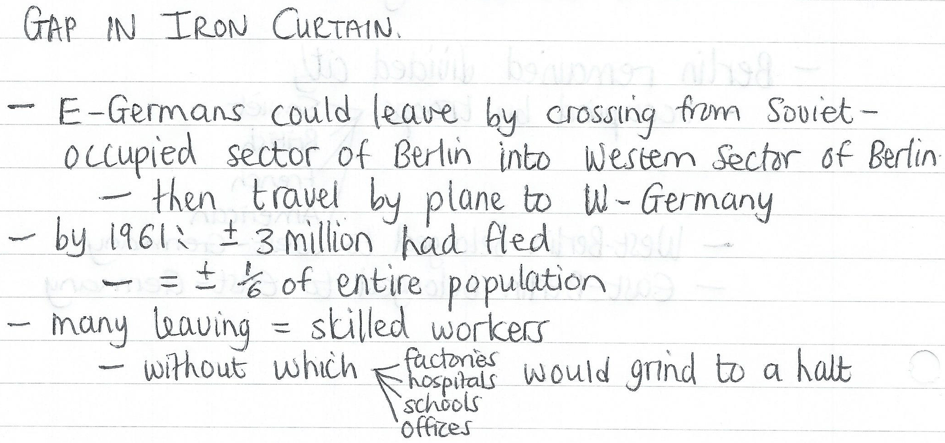 GAP IN IRON CURTAIN.
- E-Germans could leave by crossing from Soviet-
occupied sector of Berlin into Western Sector of Berlin.
- then travel by plane to W-Germany
- by 1961: ± 3 million had fled
- = ± 1/6 of entire population
- many leaving = skilled workers
- without which factories would grind to a halt
hospitals
schools
offices